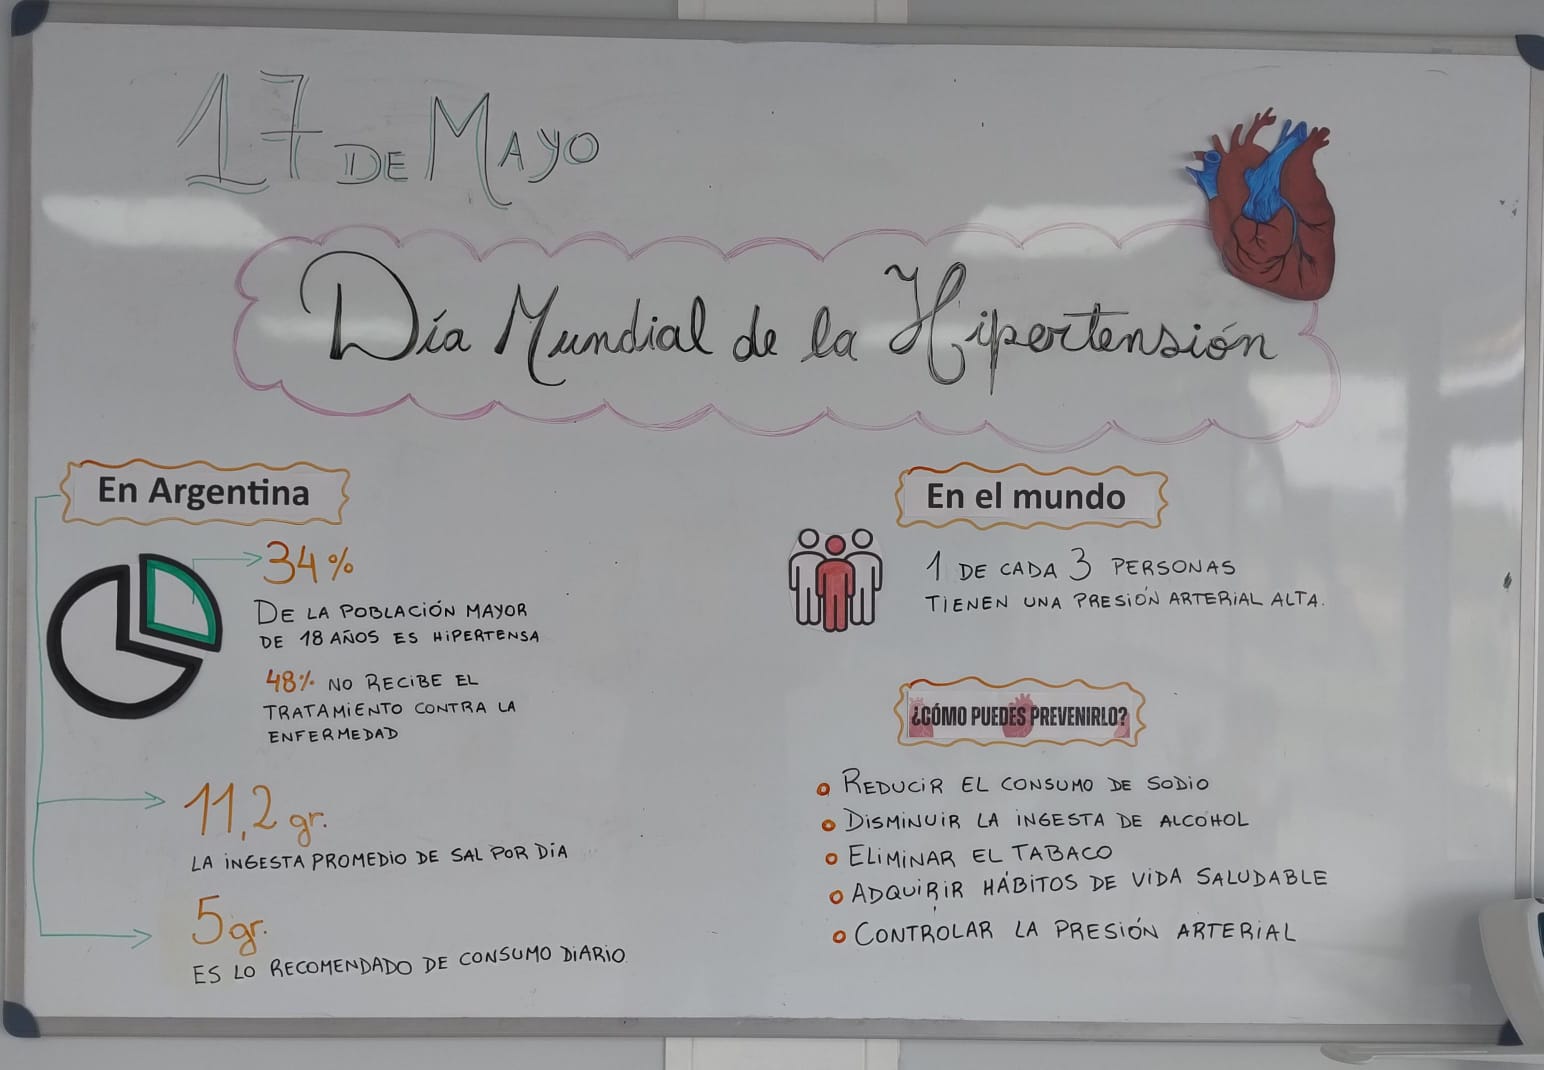 17 DE MAYO
Día Mundial de la Hipertensión
En Argentina
34%
DE LA POBLACIÓN MAYOR
DE 18 AÑOS ES HIPERTENSA
48% NO RECIBE EL
TRATAMIENTO CONTRA LA
ENFERMEDAD
11,2 gr.
LA INGESTA PROMEDIO DE SAL POR DÍA
5 gr.
ES LO RECOMENDADO DE CONSUMO DIARIO
En el mundo
1 DE CADA 3 PERSONAS
TIENEN UNA PRESIÓN ARTERIAL ALTA.
¿CÓMO PUEDES PREVENIRLO?
REDUCIR EL CONSUMO DE SODIO
DISMINUIR LA INGESTA DE ALCOHOL
ELIMINAR EL TABACO
ADQUIRIR HÁBITOS DE VIDA SALUDABLE
CONTROLAR LA PRESIÓN ARTERIAL